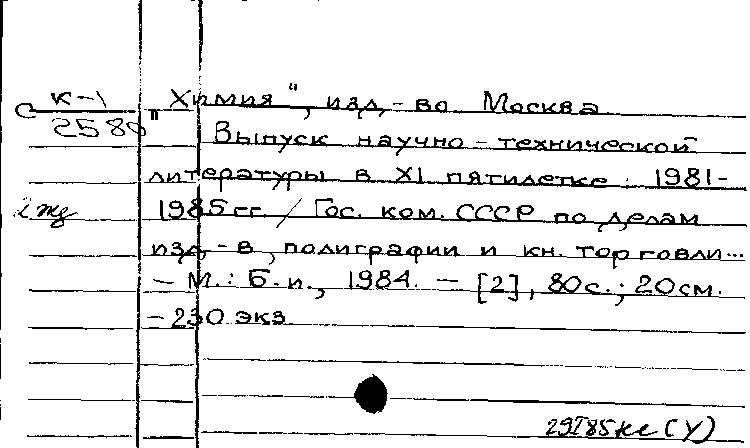 С К-1
2580
"Химия", изд-во. Москва
Выпуск научно-технической
литературы в XI пятилетке: 1981-
1985 гг. / Гос. ком. СССР по делам
изд-в, полиграфии и кн. торговли...
- М.: Б.и., 1984. - [2], 80с.; 20см.
- 230 экз.